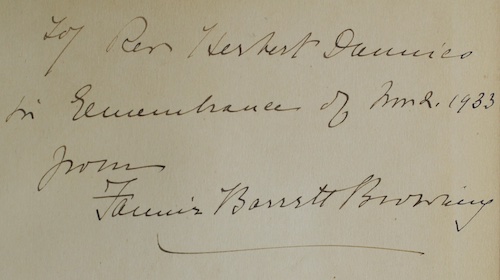 To Rev Herbert Dunnico
in remembrance of 1933
from
Fannie Barrett Browning